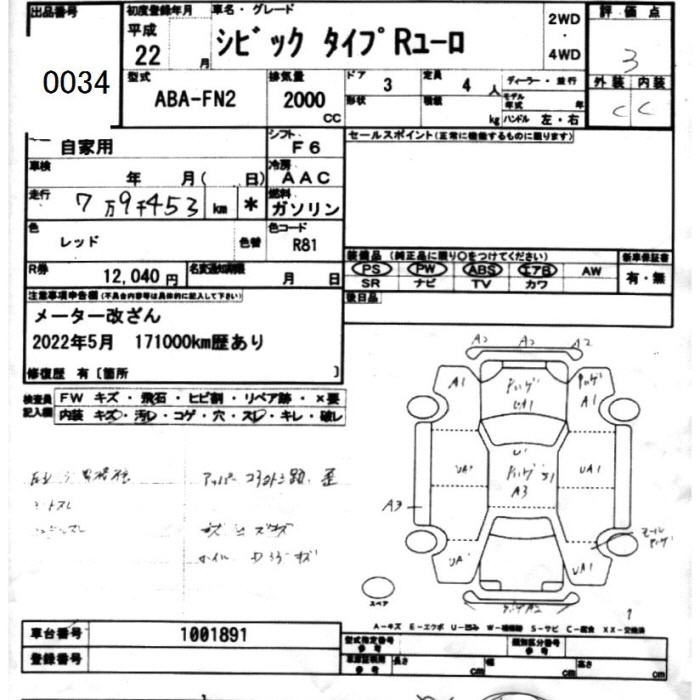 出品番号
0034
初度登録年月
平成
22 月
車名・グレード
シビック タイプRユーロ
2WD
・
4WD
評価点
3
外装 内装
C C
型式
ABA-FN2
排気量
2000
CC
ドア 3
形状
定員 4 人
積載 kg
ディーラー・並行
モデル年式 年
ハンドル 左・右
自家用
シフト
F6
セールスポイント(正常に機能するものに限ります)
車検
年 月( 日)
冷房
AAC
走行
7万9千453 km *
燃料
ガソリン
色
レッド
色替
色コード
R81
R券
12,040円
名変通知期限
月 日
装備品(純正品に限り○をつけてください)
PS PW ABS エアB AW
SR ナビ TV カワ
新車保証書
有・無
後日品
注意事項申告欄(不具合内容等は具体的に記入して下さい)
メーター改ざん
2022年5月 171000km歴あり
修復歴 有〔箇所 〕
検査員
記入欄
FW キズ・飛石・ヒビ割・リペア跡・×要
内装 キズ・汚レ・コゲ・穴・スレ・キレ・破レ
A2 A2 A2
A1
A1
UA1
UA1
A3
A3
UA1
スペア
A-キズ E-エクボ U-凹み W-補修跡 S-サビ C-腐食 XX-交換済
車台番号
1001891
登録番号
型式指定番号
参考
類別区分番号
参考
長さ cm
幅 cm
高さ cm